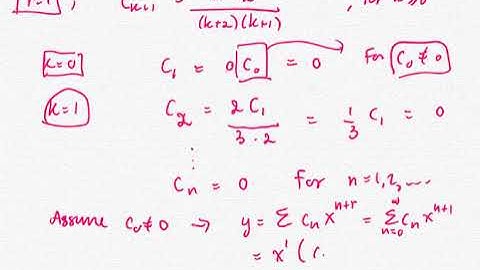 r=1, C_{k+1} = / (k+2)(k+1), for k≥0
k=0 C_1 = 0 C_0 = 0 for C_0 ≠ 0
k=1 C_2 = 2C_1 / 3·2 = 1/3 C_1 = 0
⋮
C_n = 0 for n=1,2,....
Assume C_0≠0 → y = Σ C_n x^{n+r} = Σ_{n=0}^{∞} C_n x^{n+1}
= x^1 (